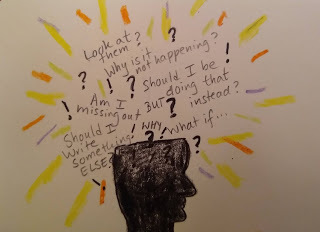 Look at
them?
?
Why is it
not happening?
!
?
?
Should I be
doing that
instead?
!
Am I
missing out
?
BUT
?
Should I
write
something
ELSE?
!
WHY
?
!
?
What if...
?